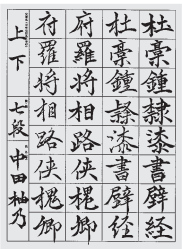 杜稾鍾隷漆書壁経
杜稾鍾隷漆書壁経
府羅将相路侠槐卿
府羅将相路侠槐卿
上下
七段 中田柚乃